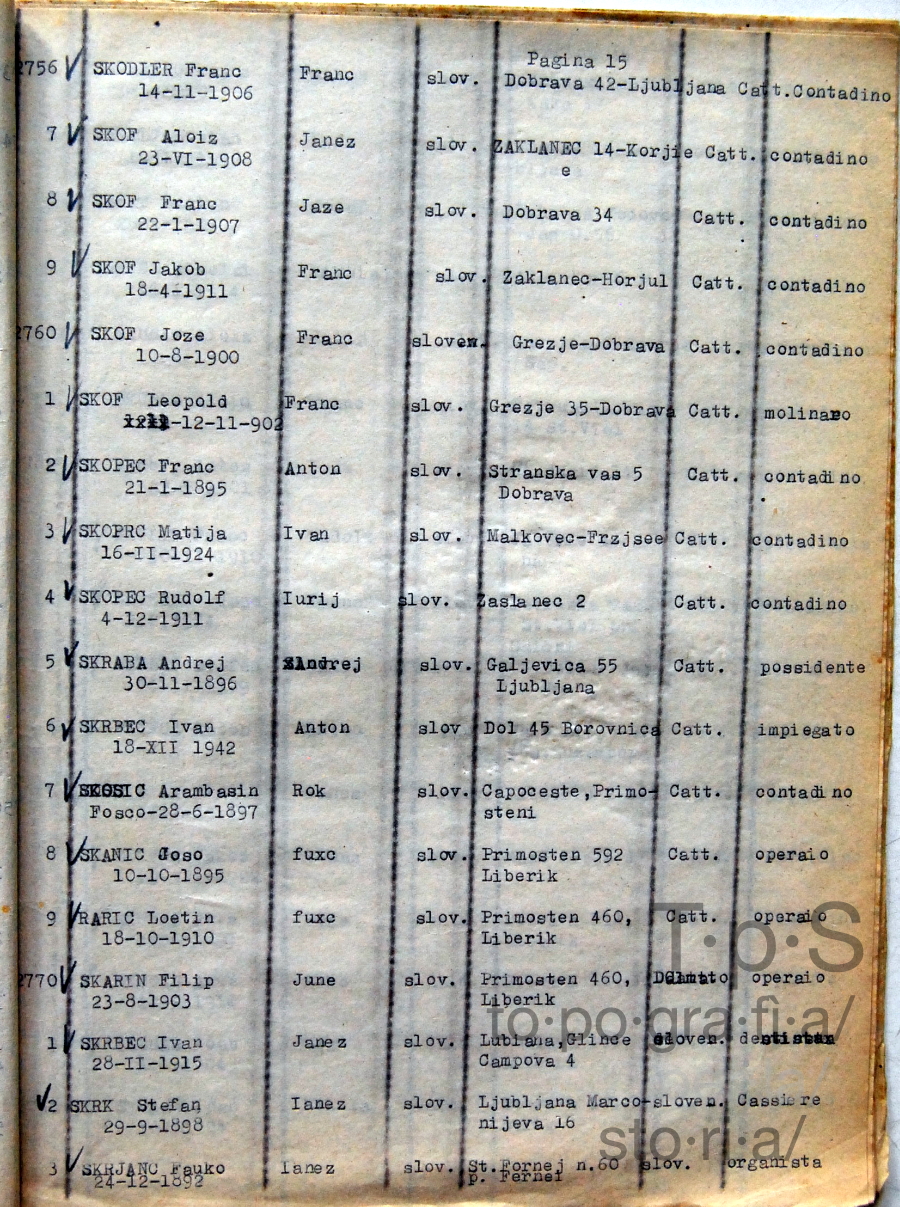 Pagina 15
2756 SKODLER Franc Franc slov. Dobrava 42-Ljubljana Catt. Contadino
14-11-1906
7 SKOF Aloiz Janez slov. ZAKLANEC 14-Korjie Catt. contadino
23-VI-1908 e
8 SKOF Franc Jaze slov. Dobrava 34 Catt. contadino
22-1-1907
9 SKOF Jakob Franc slov. Zaklanec-Horjul Catt. contadino
18-4-1911
2760 SKOF Joze Franc sloven. Grezje-Dobrava Catt. contadino
10-8-1900
1 SKOF Leopold Franc slov. Grezje 35-Dobrava Catt. molinaro
-12-11-902
2 SKOPEC Franc Anton slov. Stranska vas 5 Catt. contadino
21-1-1895 Dobrava
3 SKOPRC Matija Ivan slov. Malkovec-Frzjsee Catt. contadino
16-II-1924
4 SKOPEC Rudolf Iurij slov. Zaslanec 2 Catt. contadino
4-12-1911
5 SKRABA Andrej Andrej slov. Galjevica 55 Catt. possidente
30-11-1896 Ljubljana
6 SKRBEC Ivan Anton slov Dol 45 Borovnica Catt. impiegato
18-XII 1942
7 SKOSIC Arambasin Rok slov. Capoceste,Primo- Catt. contadino
Fosco-28-6-1897 steni
8 SKANIC Joso fuxc slov. Primosten 592 Catt. operaio
10-10-1895 Liberik
9 RARIC Loetin fuxc slov. Primosten 460, Catt. operaio
18-10-1910 Liberik
2770 SKARIN Filip June slov. Primosten 460, operaio
23-8-1903 Liberik
1 SKRBEC Ivan Janez slov. Lubiana,Glince sloven.
28-II-1915 Campova 4
2 SKRK Stefan Ianez slov. Ljubljana Marco- sloven. Cassiere
29-9-1898 nijeva 16
3 SKRJANC Fauko Ianez slov. St.Fornej n.60 slov. organista
24-12-1892 p. Fernei
T·o·S
to·po·gra·fì·a/
sto·ri·a/